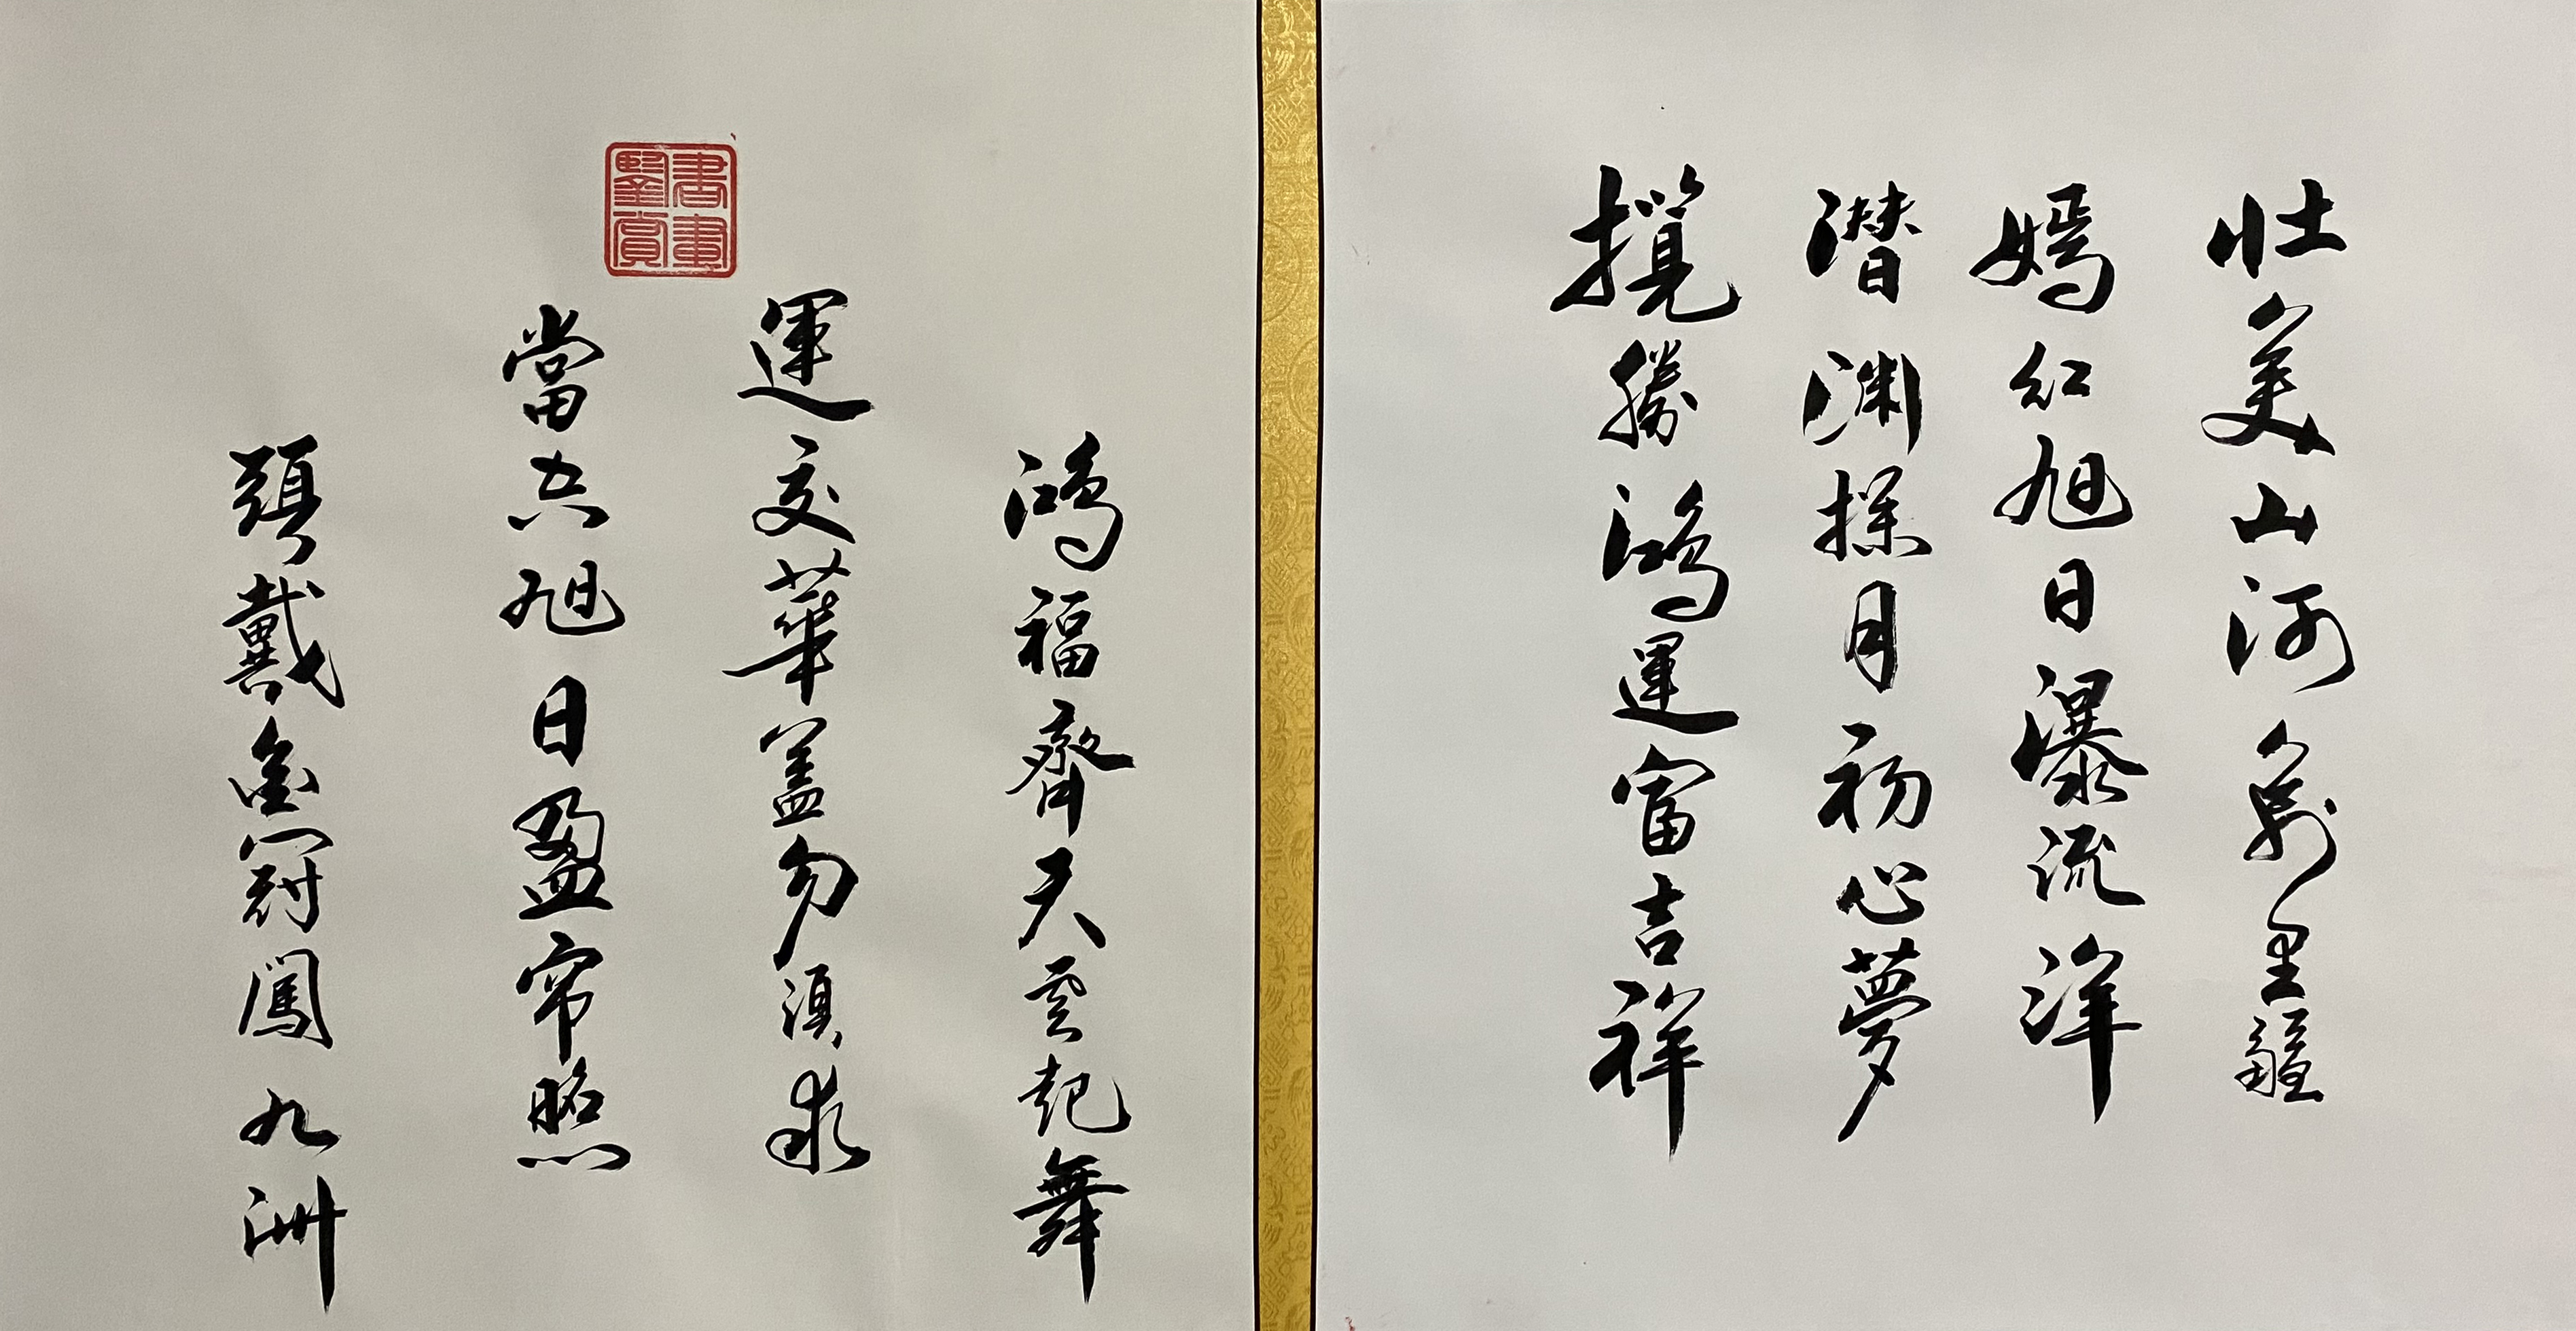 壮美山河萬里疆
嫣紅旭日瀑流洋
潛渊探月初心夢
攬勝鴻運富吉祥
鴻福齊天雲起舞
運交華蓋勿須求
當空旭日盈帘照
頭戴金冠闖九洲
書畫鑒賞